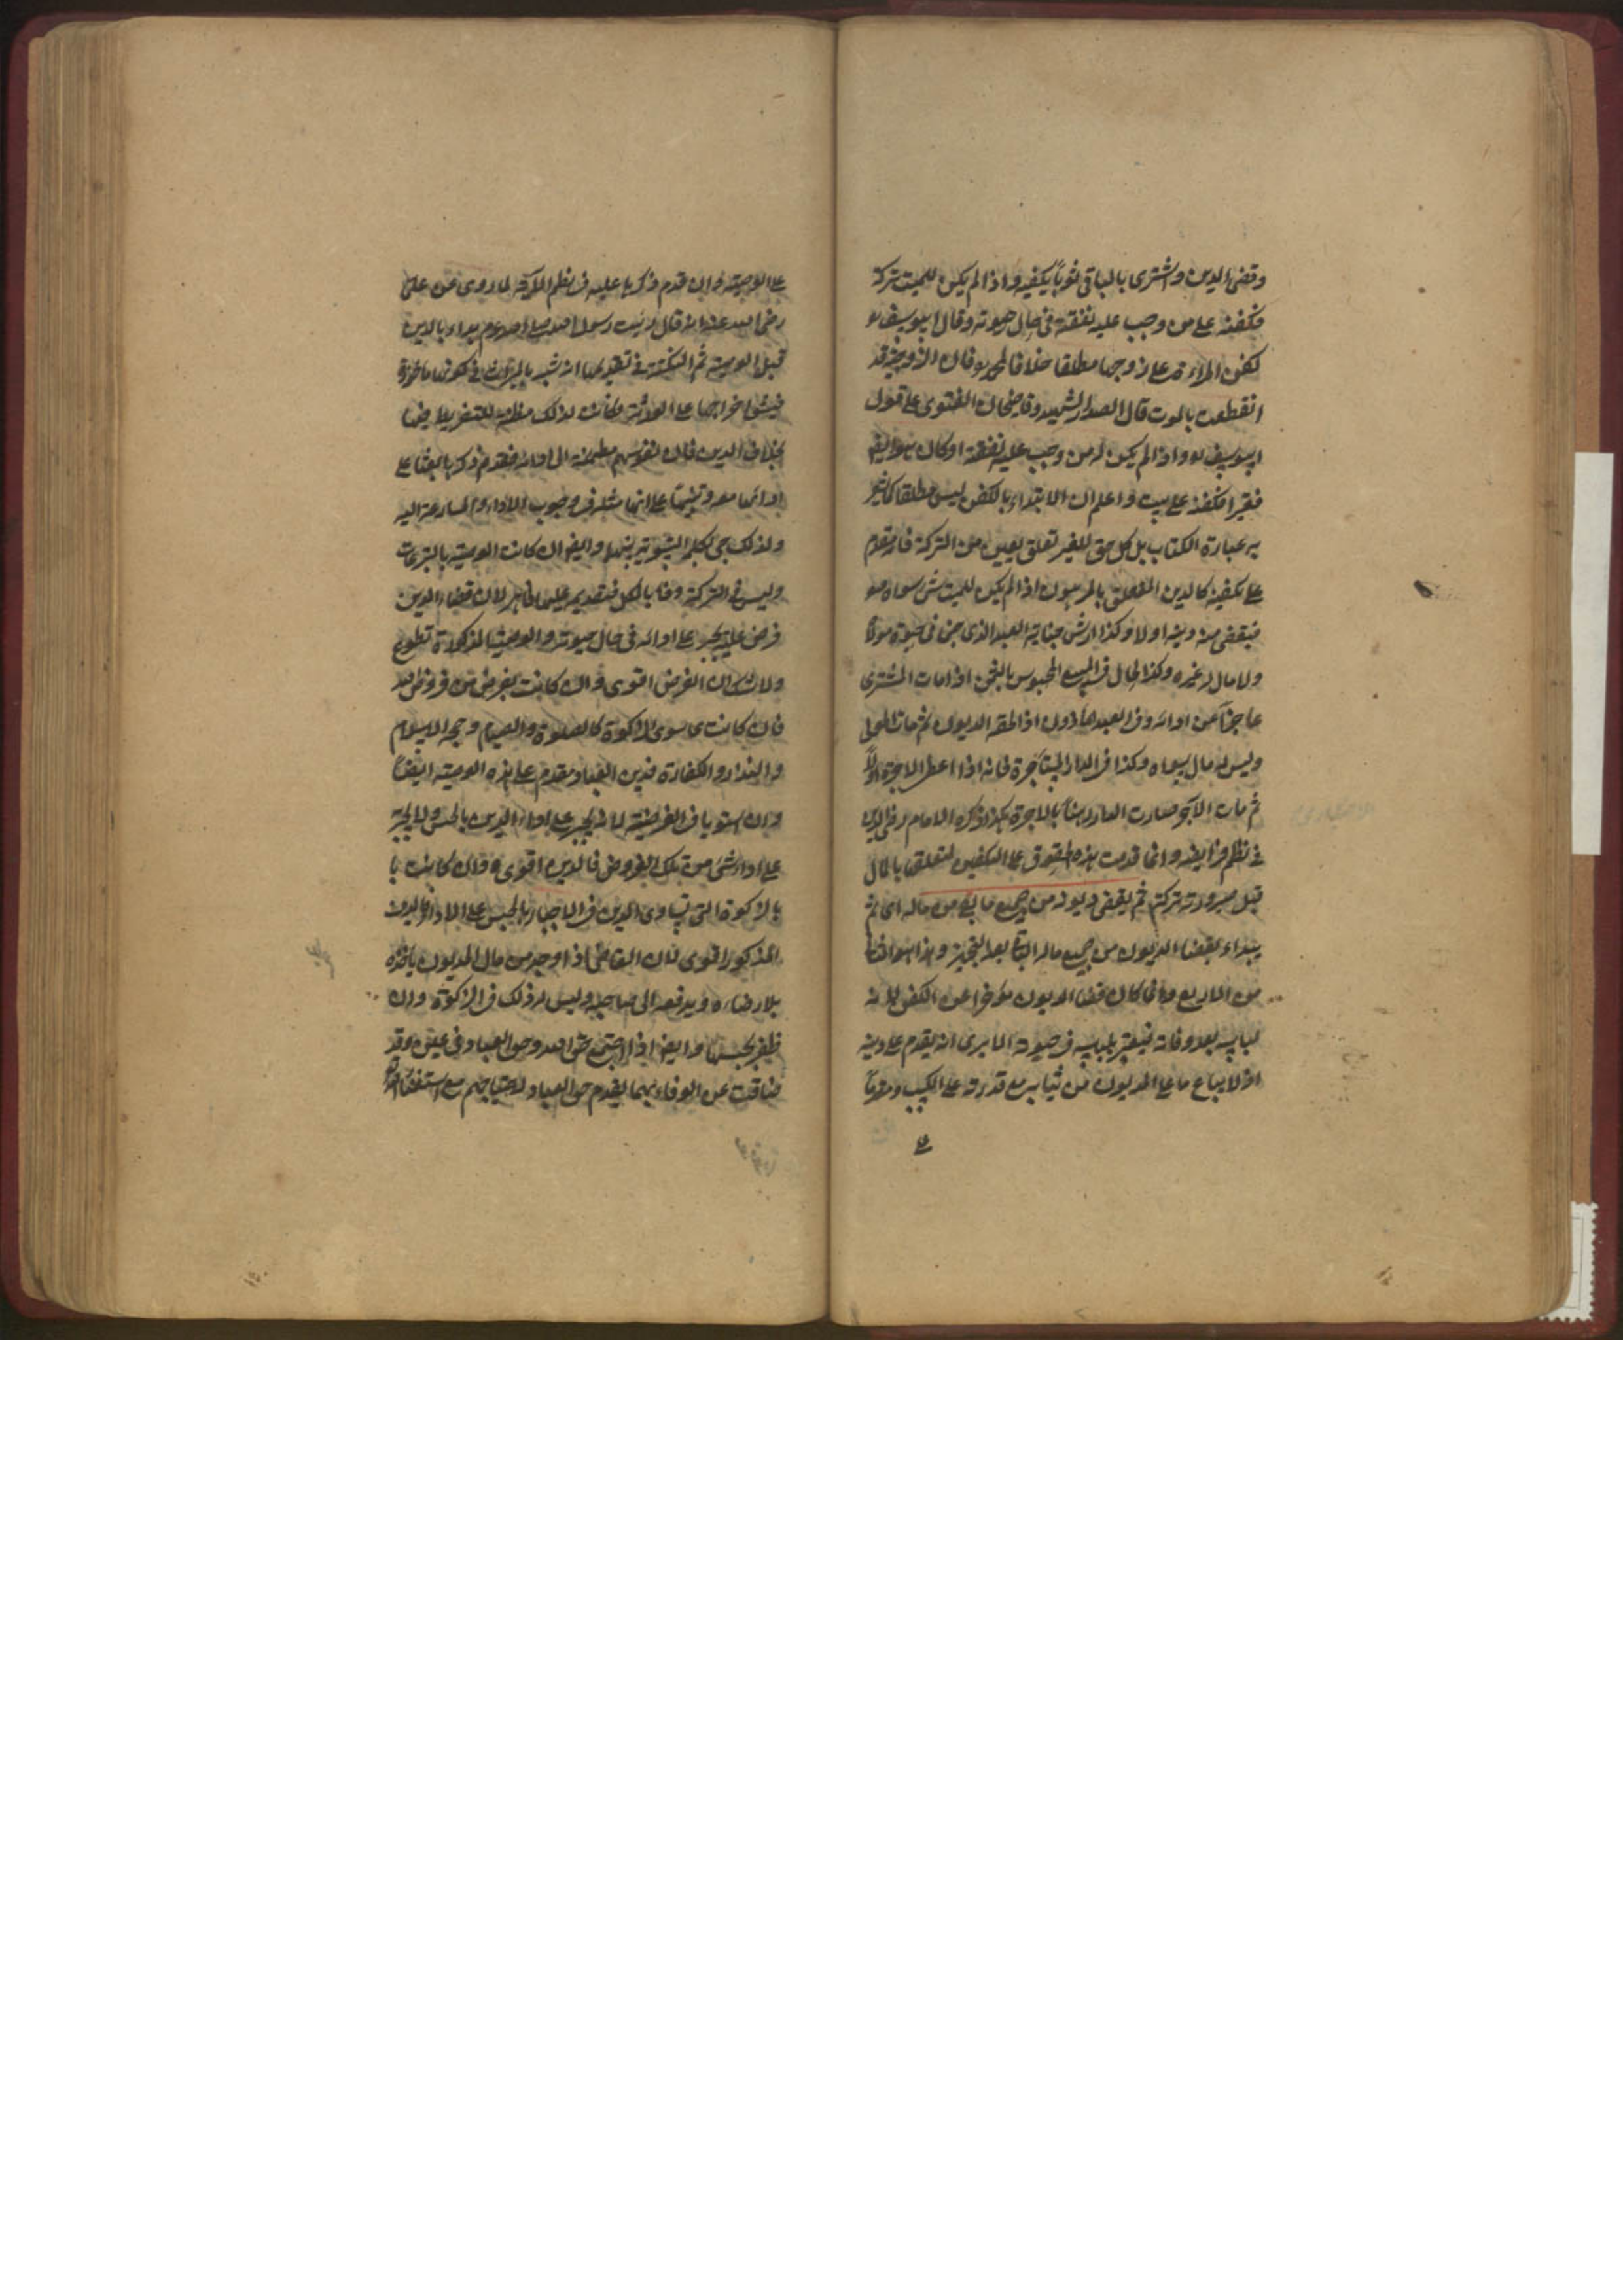 وقضى الدين واشترى بالباقى ثوبا يكفيه واذا لم يكن للميت تركة
فكفنه على من وجب عليه نفقته فى حال حيوته وقال ابو يوسف
كفن المراءة على زوجها مطلقا خلافا لمحمد فان الزوجية قد
انقطعت بالموت قال الصدر الشهيد وقاضيخان الفتوى على قول
ابو يوسف واذا لم يكن له من وجب عليه نفقته او كان
فقيرا فكفنه على بيت واعلم ان الابتداء بالكفن ليس مطلقا كما
به عبارة الكتاب بل كل حق للغير تعلق بعين من التركة فانه مقدم
على تكفينه كالدين المتعلق بالمرهون اذا لم يكن للميت شئ سواه
فيقضى منه دينه اولا وكذا ارش جناية العبد الذى جنى فى حيوة مولاه
ولا مال له غيره وكذا الحال فى المبيع المحبوس بالثمن اذا مات المشترى
عاجزا عن ادائه وفى العبد المأذون اذا لحقه الديون ثم مات المولى
وليس له مال سواه وكذا فى الدار المستأجرة فانه اذا اعطى الاجرة اولا
ثم مات الآجر صارت الدار رهنا بالاجرة هكذا ذكره الامام رضى الدين
فى نظم فرايضه وانما قدمت هذه الحقوق على التكفين لتعلقها بالمال
قبل صيرورته تركة ثم يقضى ديونه من جميع ما بقى من ماله اى ثم
يبداء بقضاء الديون من جميع ماله الباقى بعد التجهيز وهذا هو الثانى
من الاربع وانما كان قضاء الديون مؤخرا عن الكفن لانه
لباسه بعد وفاته فيعتبر بلباسه فى حيوته الا يرى انه يقدم على دينه
اذ لا يباع ما على المديون من ثيابه مع قدرته على الكسب
على الوصية وان قدم ذكرها عليه فى نظم الآية لما روى عن على
رضى الله عنه انه قال رئيت رسول الله بداء بالدين
قبل الوصية ثم النكتة فى تقديمها انه شبه بالميراث فى كونها مأخوذة
فيشق اخراجها على الورثة فكانت لذلك مظنة للتفريط فيها
بخلاف الدين فان نفوسهم مطمئنة الى ادائه فقدم ذكرها بعثا على
ادائها معه وتنبيها على انها مثله فى وجوب الاداء والمسارعة اليه
ولذلك جئ بكلمة التسوية بينهما وايضا ان كانت الوصية بالتبرعات
وليس فى التركة وفا بالكل فتقديمه عليها ظاهر لان قضاء الدين
فرض عليه يجبر على ادائه فى حال حيوته والوصية المذكورة تطوع
ولا شك ان الفرض اقوى وان كانت بفرض من فروض الله
فان كانت بما سوى الزكوة كالصلوة والصيام وحجة الاسلام
والنذر والكفارة فدين العباد مقدم على هذه الوصية ايضا
وان استويا فى الفرضية لانه يجبر على اداء الدين بالحبس ولا يجبر
على اداء شئ من تلك الفروض فالدين اقوى وان كانت با
بالزكوة التى تساوى الدين فى الاجبار بالحبس على الاداء فالدين
المذكور اقوى فان القاضى اذا وجد من مال المديون ياخذه
بلا رضاه ويدفعه الى صاحبه وليس له ذلك فى الزكوة وان
ظفر بجنسها وايضا اذا اجتمع حق الله وحق العباد فى عين وقد
ضاقت عن الوفاء بهما يقدم حق العباد لاحتياجهم مع استغناء